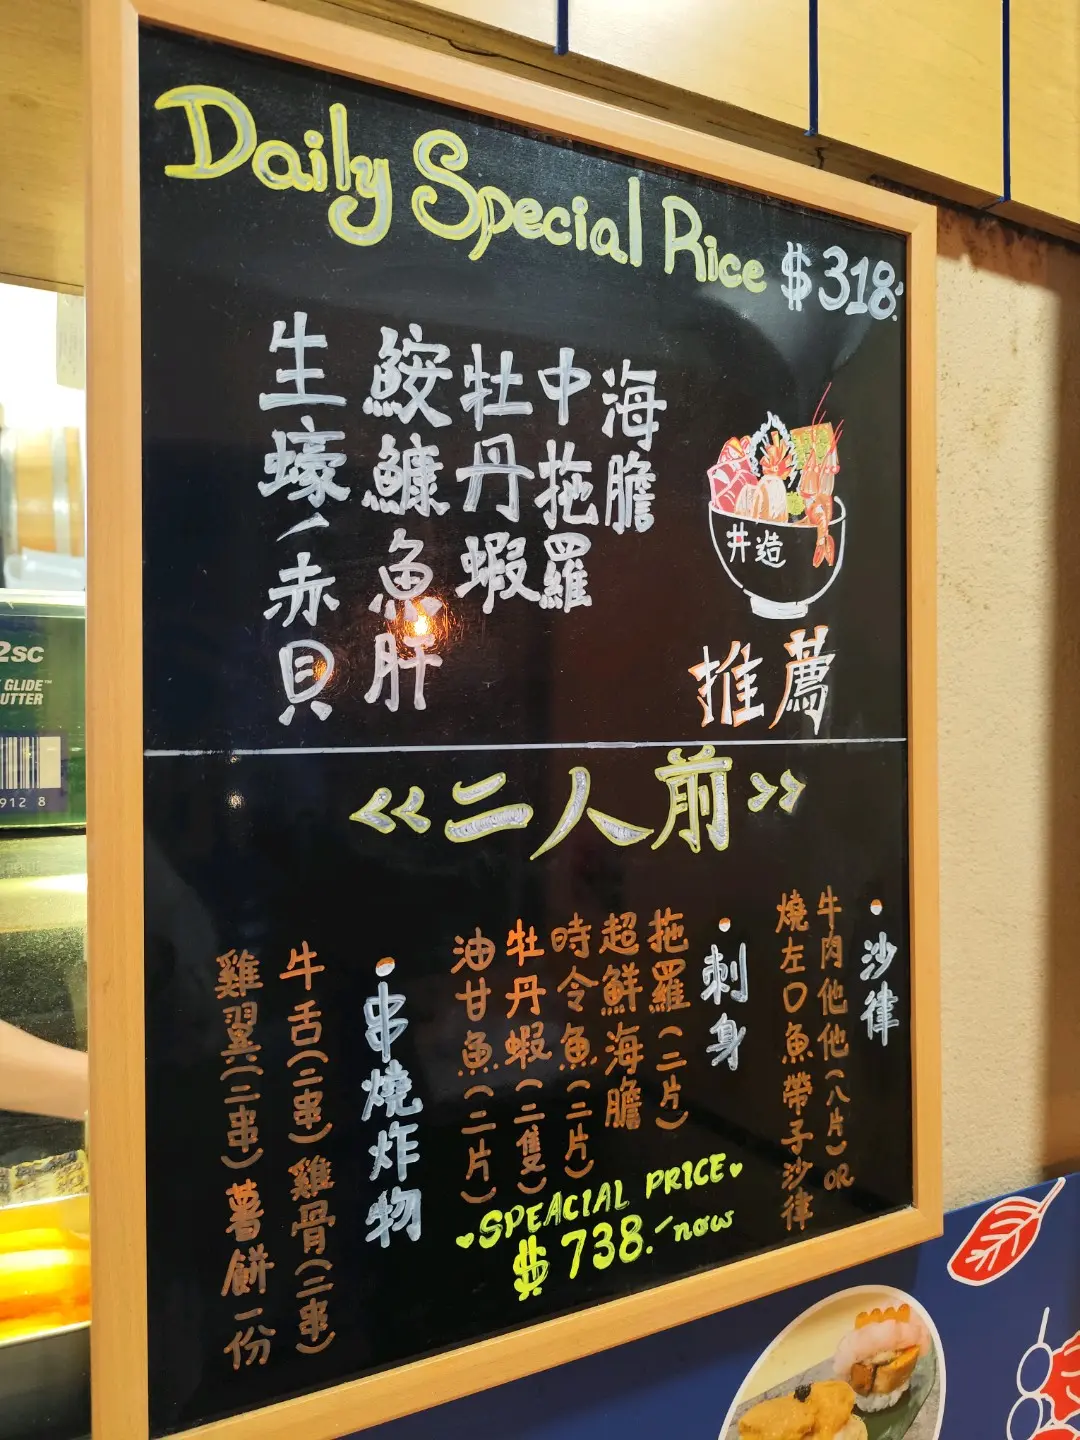 Daily Special Rice $318.
海膽
中拖羅
牡丹蝦
鮟鱇魚肝
生蠔、赤貝
丼造
推薦
<<二人前>>
•沙律
牛肉他他(八片)OR
燒左口魚帶子沙律
•刺身
拖羅(二片)
超鮮海膽
時令魚(二片)
牡丹蝦(二隻)
油甘魚(二片)
•串燒炸物
牛舌(二串)雞骨(二串)
雞翼(二串)薯餅一份
SPEACIAL PRICE
$738. now
2SC
GLIDE™
UTTER
912 8